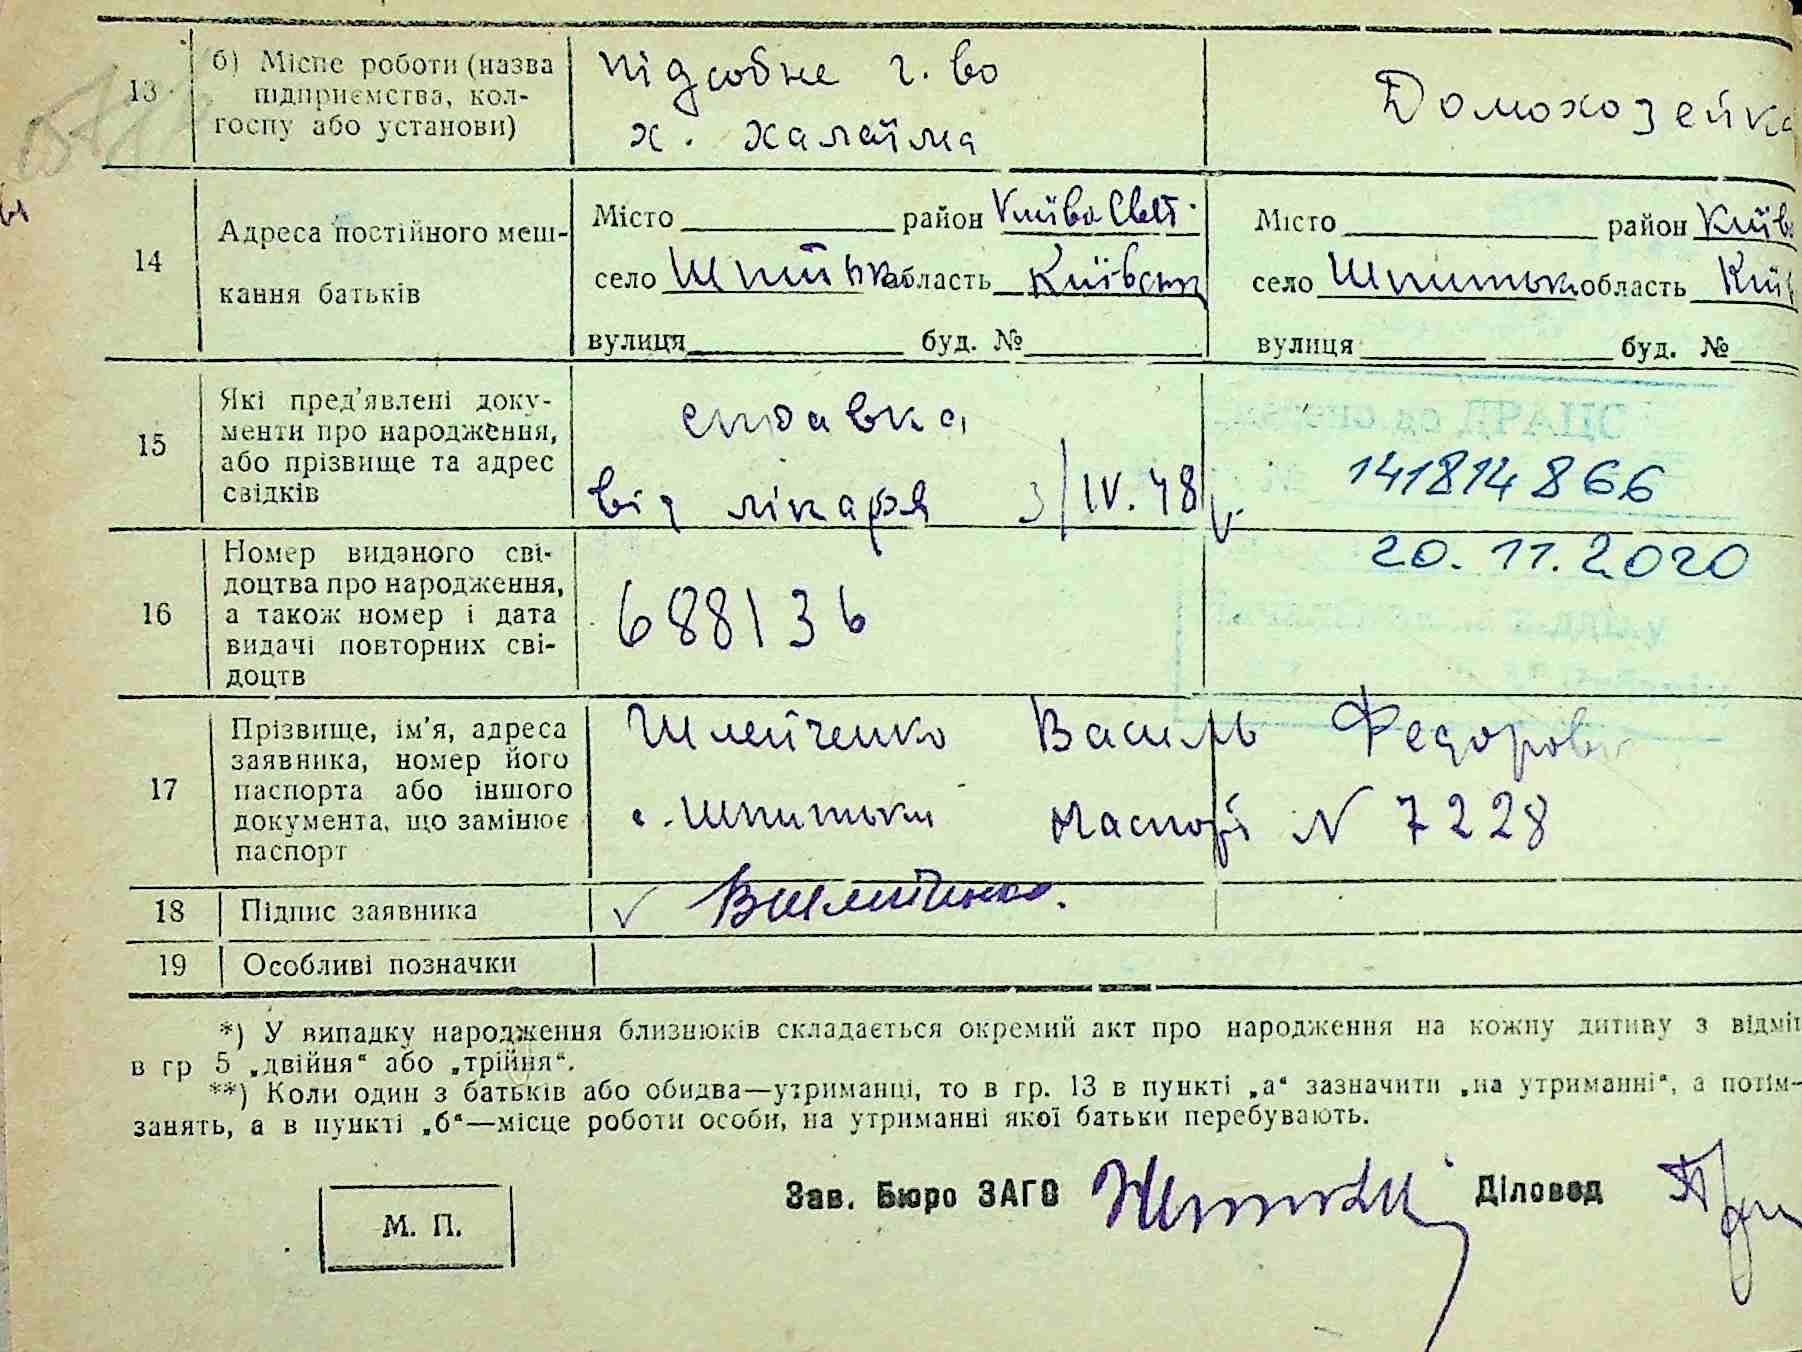 13 б) Місце роботи (назва підприємства, колгоспу або установи) підсобне г. во х. халаїма Домохозейка
14 Адреса постійного мешкання батьків
Місто район Києво Свят. Місто район Київо
село Шпитьки область Київськ село Шпитьки область Київ
вулиця буд. № вулиця буд. №
15 Які пред'явлені документи про народження, або прізвище та адрес свідків справка від лікаря 3/IV.48 р. 141814866
20.11.2020
16 Номер виданого свідоцтва про народження, а також номер і дата видачі повторних свідоцтв 688136
17 Прізвище, ім'я, адреса заявника, номер його паспорта або іншого документа, що замінює паспорт Шлейченко Василь Федорови
с. Шпитьки паспорт N 7228
18 Підпис заявника ✓ ВШлейченко.
19 Особливі позначки
*) У випадку народження близнюків складається окремий акт про народження на кожну дитину з відміт
в гр 5 „двійня“ або „трійня“.
**) Коли один з батьків або обидва—утриманці, то в гр. 13 в пункті „а“ зазначити „на утриманні“, а потім-
занять, а в пункті „б“—місце роботи особи, на утриманні якої батьки перебувають.
Зав. Бюро ЗАГС Діловод
М. П.